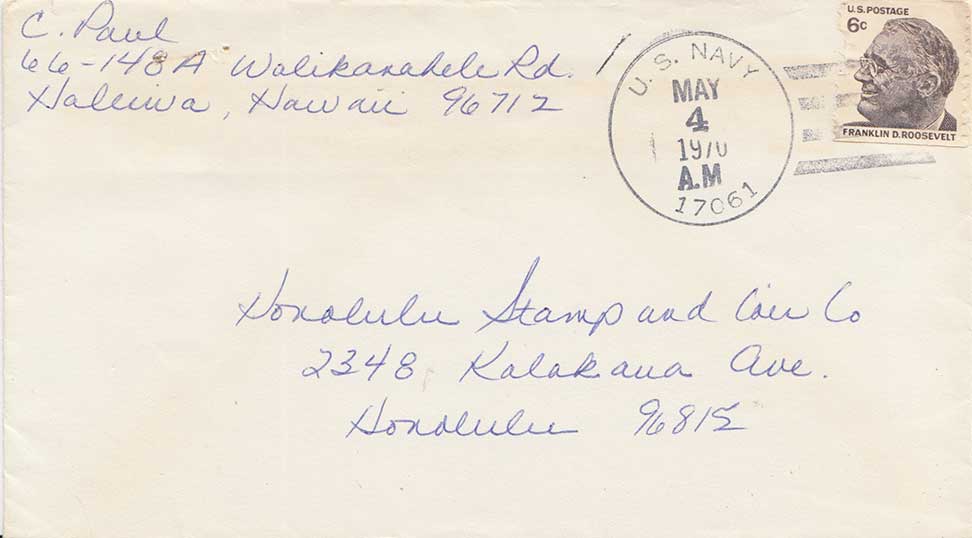 C. Paul
66-148A Walikanahele Rd.
Haleiwa, Hawaii 96712
U.S. NAVY
MAY
4
1970
A.M
17061
U.S. POSTAGE
6c
FRANKLIN D. ROOSEVELT
Honolulu Stamp and Coin Co
2348 Kalakaua Ave.
Honolulu 96815